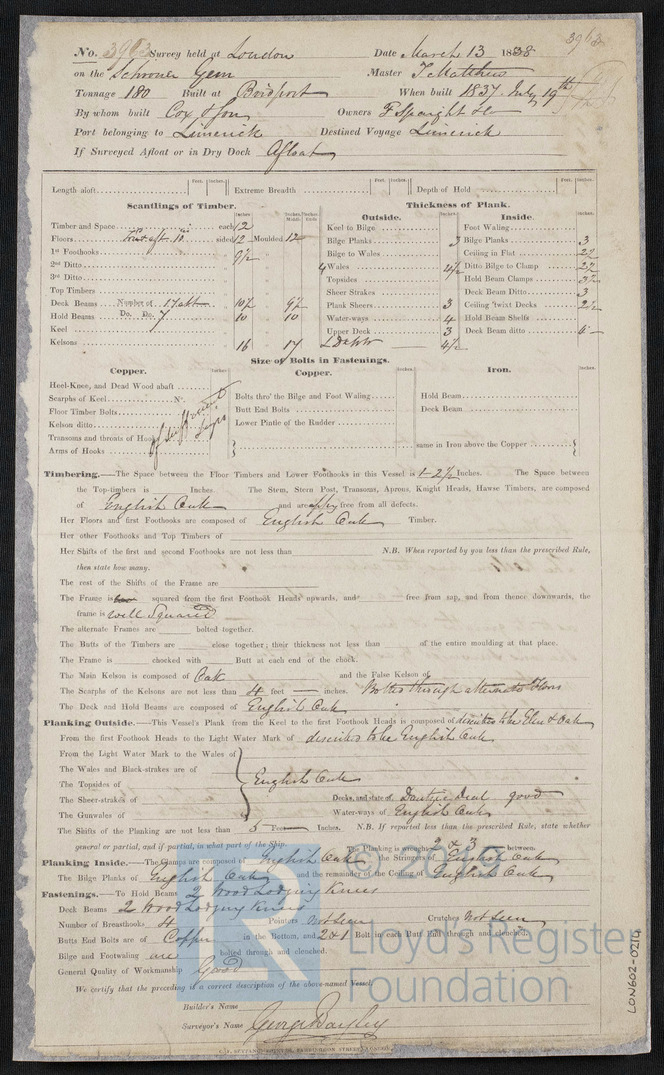 No. 3963 Survey held at London Date March 13 1838
3963
on the Schooner Gem Master J Matthews
Tonnage 180 Built at Bridport When built 1837 July 19th
By whom built Cox & Son Owners F Spaight & Co
Port belonging to Limerick Destined Voyage Limerick
If Surveyed Afloat or in Dry Dock Afloat
Feet. Inches. Feet. Inches. Feet. Inches.
Length aloft Extreme Breadth Depth of Hold
Scantlings of Timber. Thickness of Plank.
Outside. Inside.
Timber and Space each 12 Keel to Bilge Foot Waling
Floors sided 12 Moulded 12 Bilge Planks 3 Bilge Planks 3
1st Foothooks 9½ Bilge to Wales Ceiling in Flat 2½
2nd Ditto 4 Wales 4½ Ditto Bilge to Clamp 2½
3rd Ditto Topsides Hold Beam Clamps 3½
Top Timbers Sheer Strakes Deck Beam Ditto 3
Deck Beams Number of 17 10½ 9½ Plank Sheers 3 Ceiling 'twixt Decks 2½
Hold Beams Do. No. 7 10 10 Water-ways 4 Hold Beam Shelfs
Keel Upper Deck 3 Deck Beam ditto 6
Kelsons 16 17 4½
Size of Bolts in Fastenings.
Copper. Copper. Iron.
Heel-Knee, and Dead Wood abaft
Scarphs of Keel No. Bolts thro' the Bilge and Foot Waling Hold Beam
Floor Timber Bolts Butt End Bolts Deck Beam
Kelson ditto Lower Pintle of the Rudder
Transons and throats of Hooks same in Iron above the Copper
Arms of Hooks
of sufficient Sizes
Timbering.—The Space between the Floor Timbers and Lower Foothooks in this Vessel is 1-2½ Inches. The Space between
the Top-timbers is Inches. The Stem, Stern Post, Transons, Aprons, Knight Heads, Hawse Timbers, are composed
of English Oak and are free from all defects.
Her Floors and first Foothooks are composed of English Oak Timber.
Her other Foothooks and Top Timbers of
Her Shifts of the first and second Foothooks are not less than N.B. When reported by you less than the prescribed Rule,
then state how many.
The rest of the Shifts of the Frame are
The Frame is squared from the first Foothook Heads upwards, and free from sap, and from thence downwards, the
frame is well Squared
The alternate Frames are bolted together.
The Butts of the Timbers are close together; their thickness not less than of the entire moulding at that place.
The Frame is chocked with Butt at each end of the chock.
The Main Kelson is composed of Oak and the False Kelson of
The Scarphs of the Kelsons are not less than 4 feet inches. Bolted through alternate Floors
The Deck and Hold Beams are composed of English Oak
Planking Outside.—This Vessel's Plank from the Keel to the first Foothook Heads is composed of described to be Elm & Oak
From the first Foothook Heads to the Light Water Mark of described to be English Oak
From the Light Water Mark to the Wales of
The Wales and Black-strakes are of
The Topsides of English Oak
The Sheer-strakes of Decks, and state of Dantzic Deal good
The Gunwales of Water-ways of English Oak
The Shifts of the Planking are not less than 5 Feet Inches. N.B. If reported less than the prescribed Rule, state whether
general or partial, and if partial, in what part of the Ship. The Planking is wrought 2 & 3 between.
Planking Inside.—The Clamps are composed of English Oak the Stringers of English Oak
The Bilge Planks of English Oak and the remainder of the Ceiling of English Oak
Fastenings.—To Hold Beams 2 Wood Lodging Knees
Deck Beams 2 Wood Lodging Knees
Number of Breasthooks 4 Pointers Not seen Crutches Not Seen
Butts End Bolts are of Copper in the Bottom, and 2 & 1 Bolt in each Butt End through and clenched.
Bilge and Footwaling are bolted through and clenched.
General Quality of Workmanship Good
We certify that the preceding is a correct description of the above-named Vessel.
Builder's Name
Surveyor's Name George Bayley
© 2019
Lloyd's Register
Foundation
LR
LON602-0214